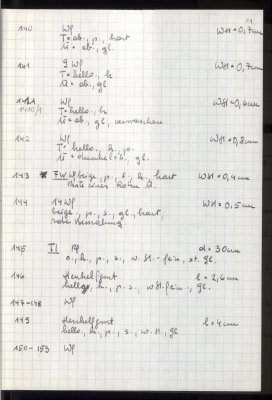 140 Wf WH = 0,7cm
T = ab., p., hart
Ü = ab., gl.
141 9 Wf WH = 0,7cm
T = hellb., h.
Ü = ab., gl.
141A Wf WH = 0,6cm
1410/1 T = hellb., h.
Ü = ab., gl., verwaschen
142 Wf WH = 0,8cm
T = hellb., h., p.
Ü = dunkel, gl.
143 FW Wf beige, p., s., h., hart WH = 0,4cm
Reste eines Ü.
144 14 Wf WH = 0,5cm
beige, p., s., gl., hart,
rote Bemalung
145 TI Rf d = 30cm
o., h., p., s., w.H.-fein, st. gl.
146 Henkelfgmt l = 2,6cm
hellg., h., p., s., w.H. fein., gl.
147-148 Wf
149 Henkelfgmt l = 4cm
hellb., h., p., s., w.H., gl
150-153 Wf